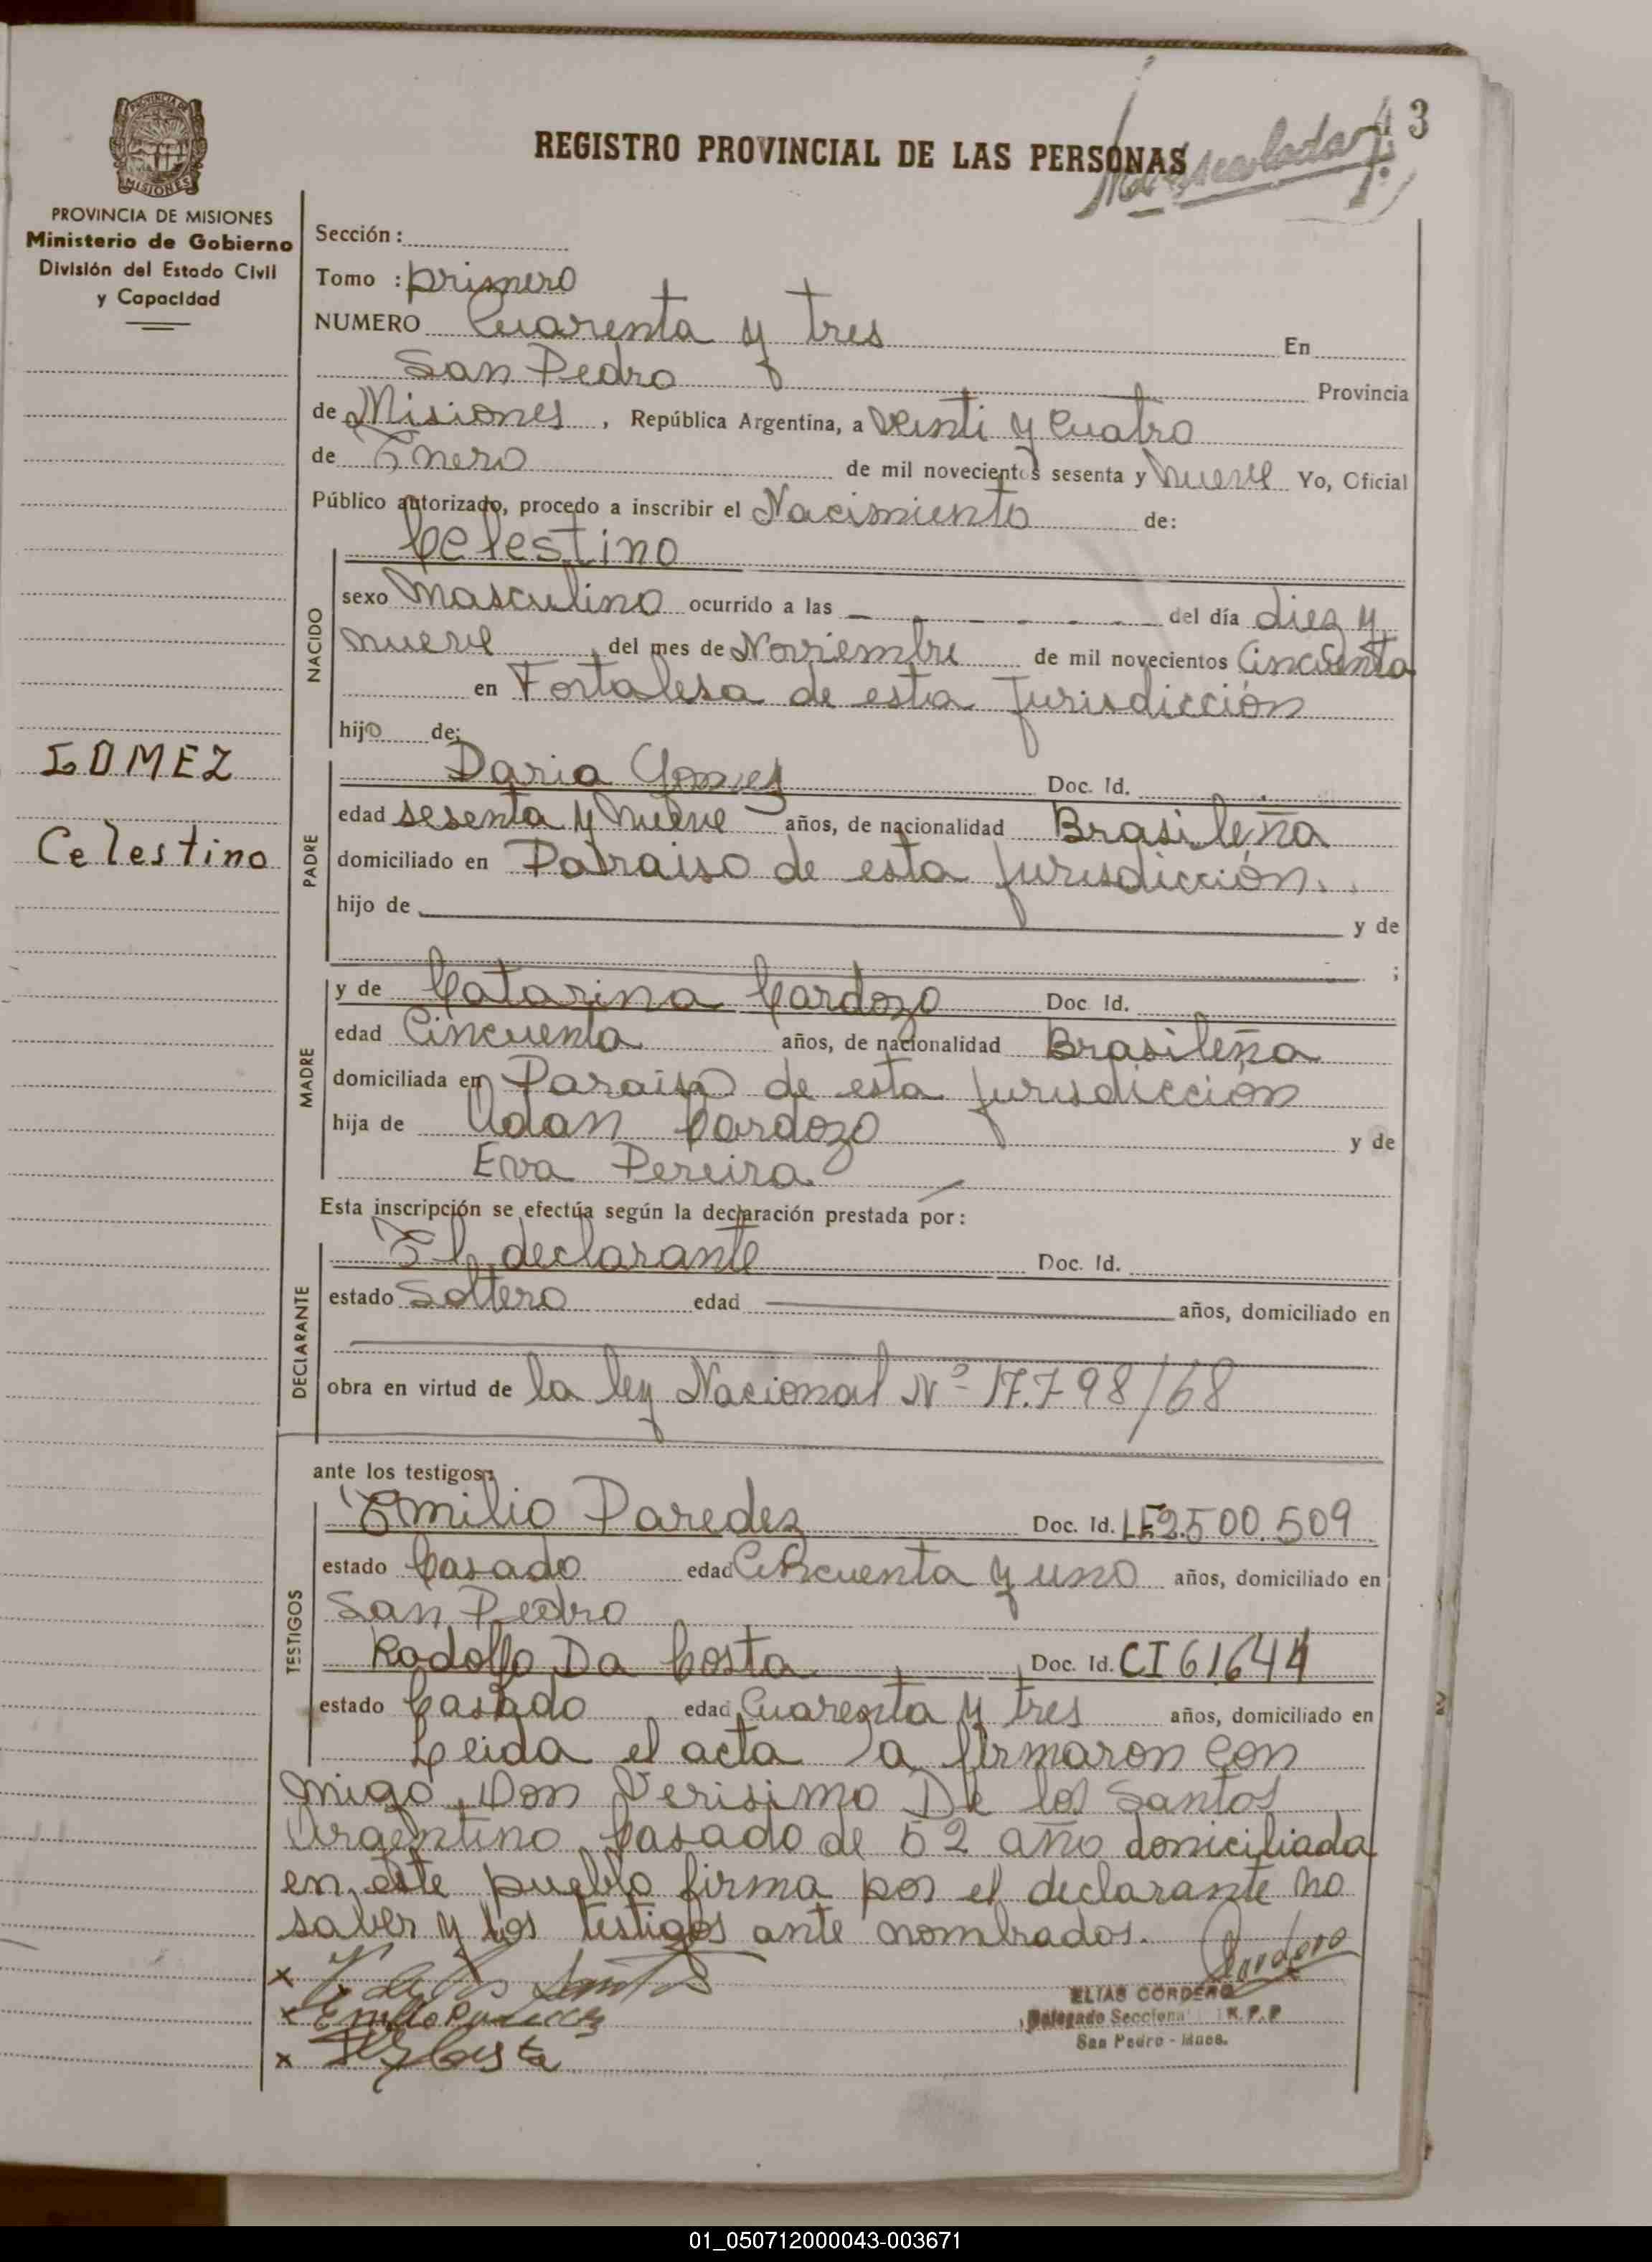 43
REGISTRO PROVINCIAL DE LAS PERSONAS
PROVINCIA DE MISIONES
MISIONES
PROVINCIA DE MISIONES
Ministerio de Gobierno
División del Estado Civil
y Capacidad
GOMEZ
Celestino
Sección:
Tomo : primero
NUMERO Cuarenta y tres En
San Pedro Provincia
de Misiones, República Argentina, a Veinti y Cuatro
de Enero de mil novecientos sesenta y nueve Yo, Oficial
Público autorizado, procedo a inscribir el Nacimiento de:
NACIDO
Celestino
sexo Masculino ocurrido a las del día diez y
nueve del mes de Noviembre de mil novecientos Cincuenta
en Fortalesa de esta Jurisdicción
hijo de:
PADRE
Daria Gomez Doc. Id.
edad sesenta y nueve años, de nacionalidad Brasileña
domiciliado en Paraiso de esta jurisdicción.
hijo de y de
;
MADRE
y de Catarina Cardozo Doc. Id.
edad Cincuenta años, de nacionalidad Brasileña
domiciliada en Paraiso de esta jurisdicción
hija de Adan Cardozo y de
Eva Pereira
Esta inscripción se efectúa según la declaración prestada por:
DECLARANTE
El declarante Doc. Id.
estado Soltero edad años, domiciliado en
obra en virtud de la ley Nacional Nº 17.798/68
ante los testigos:
TESTIGOS
Emilio Paredez Doc. Id. LE2.500.509
estado Casado edad Cincuenta y uno años, domiciliado en
San Pedro
Rodolfo Da Costa Doc. Id. CI 61644
estado Casado edad Cuarenta y tres años, domiciliado en
Leida el acta la firmaron con
migo Don Verisimo De los Santos
Argentino Casado de 52 año domiciliada
en este pueblo firma por el declarante no
saber y los testigos ante nombrados.
Cordero
ELIAS CORDERO
Delegado Seccional R.P.P
San Pedro - Mnes.
01_050712000043-003671